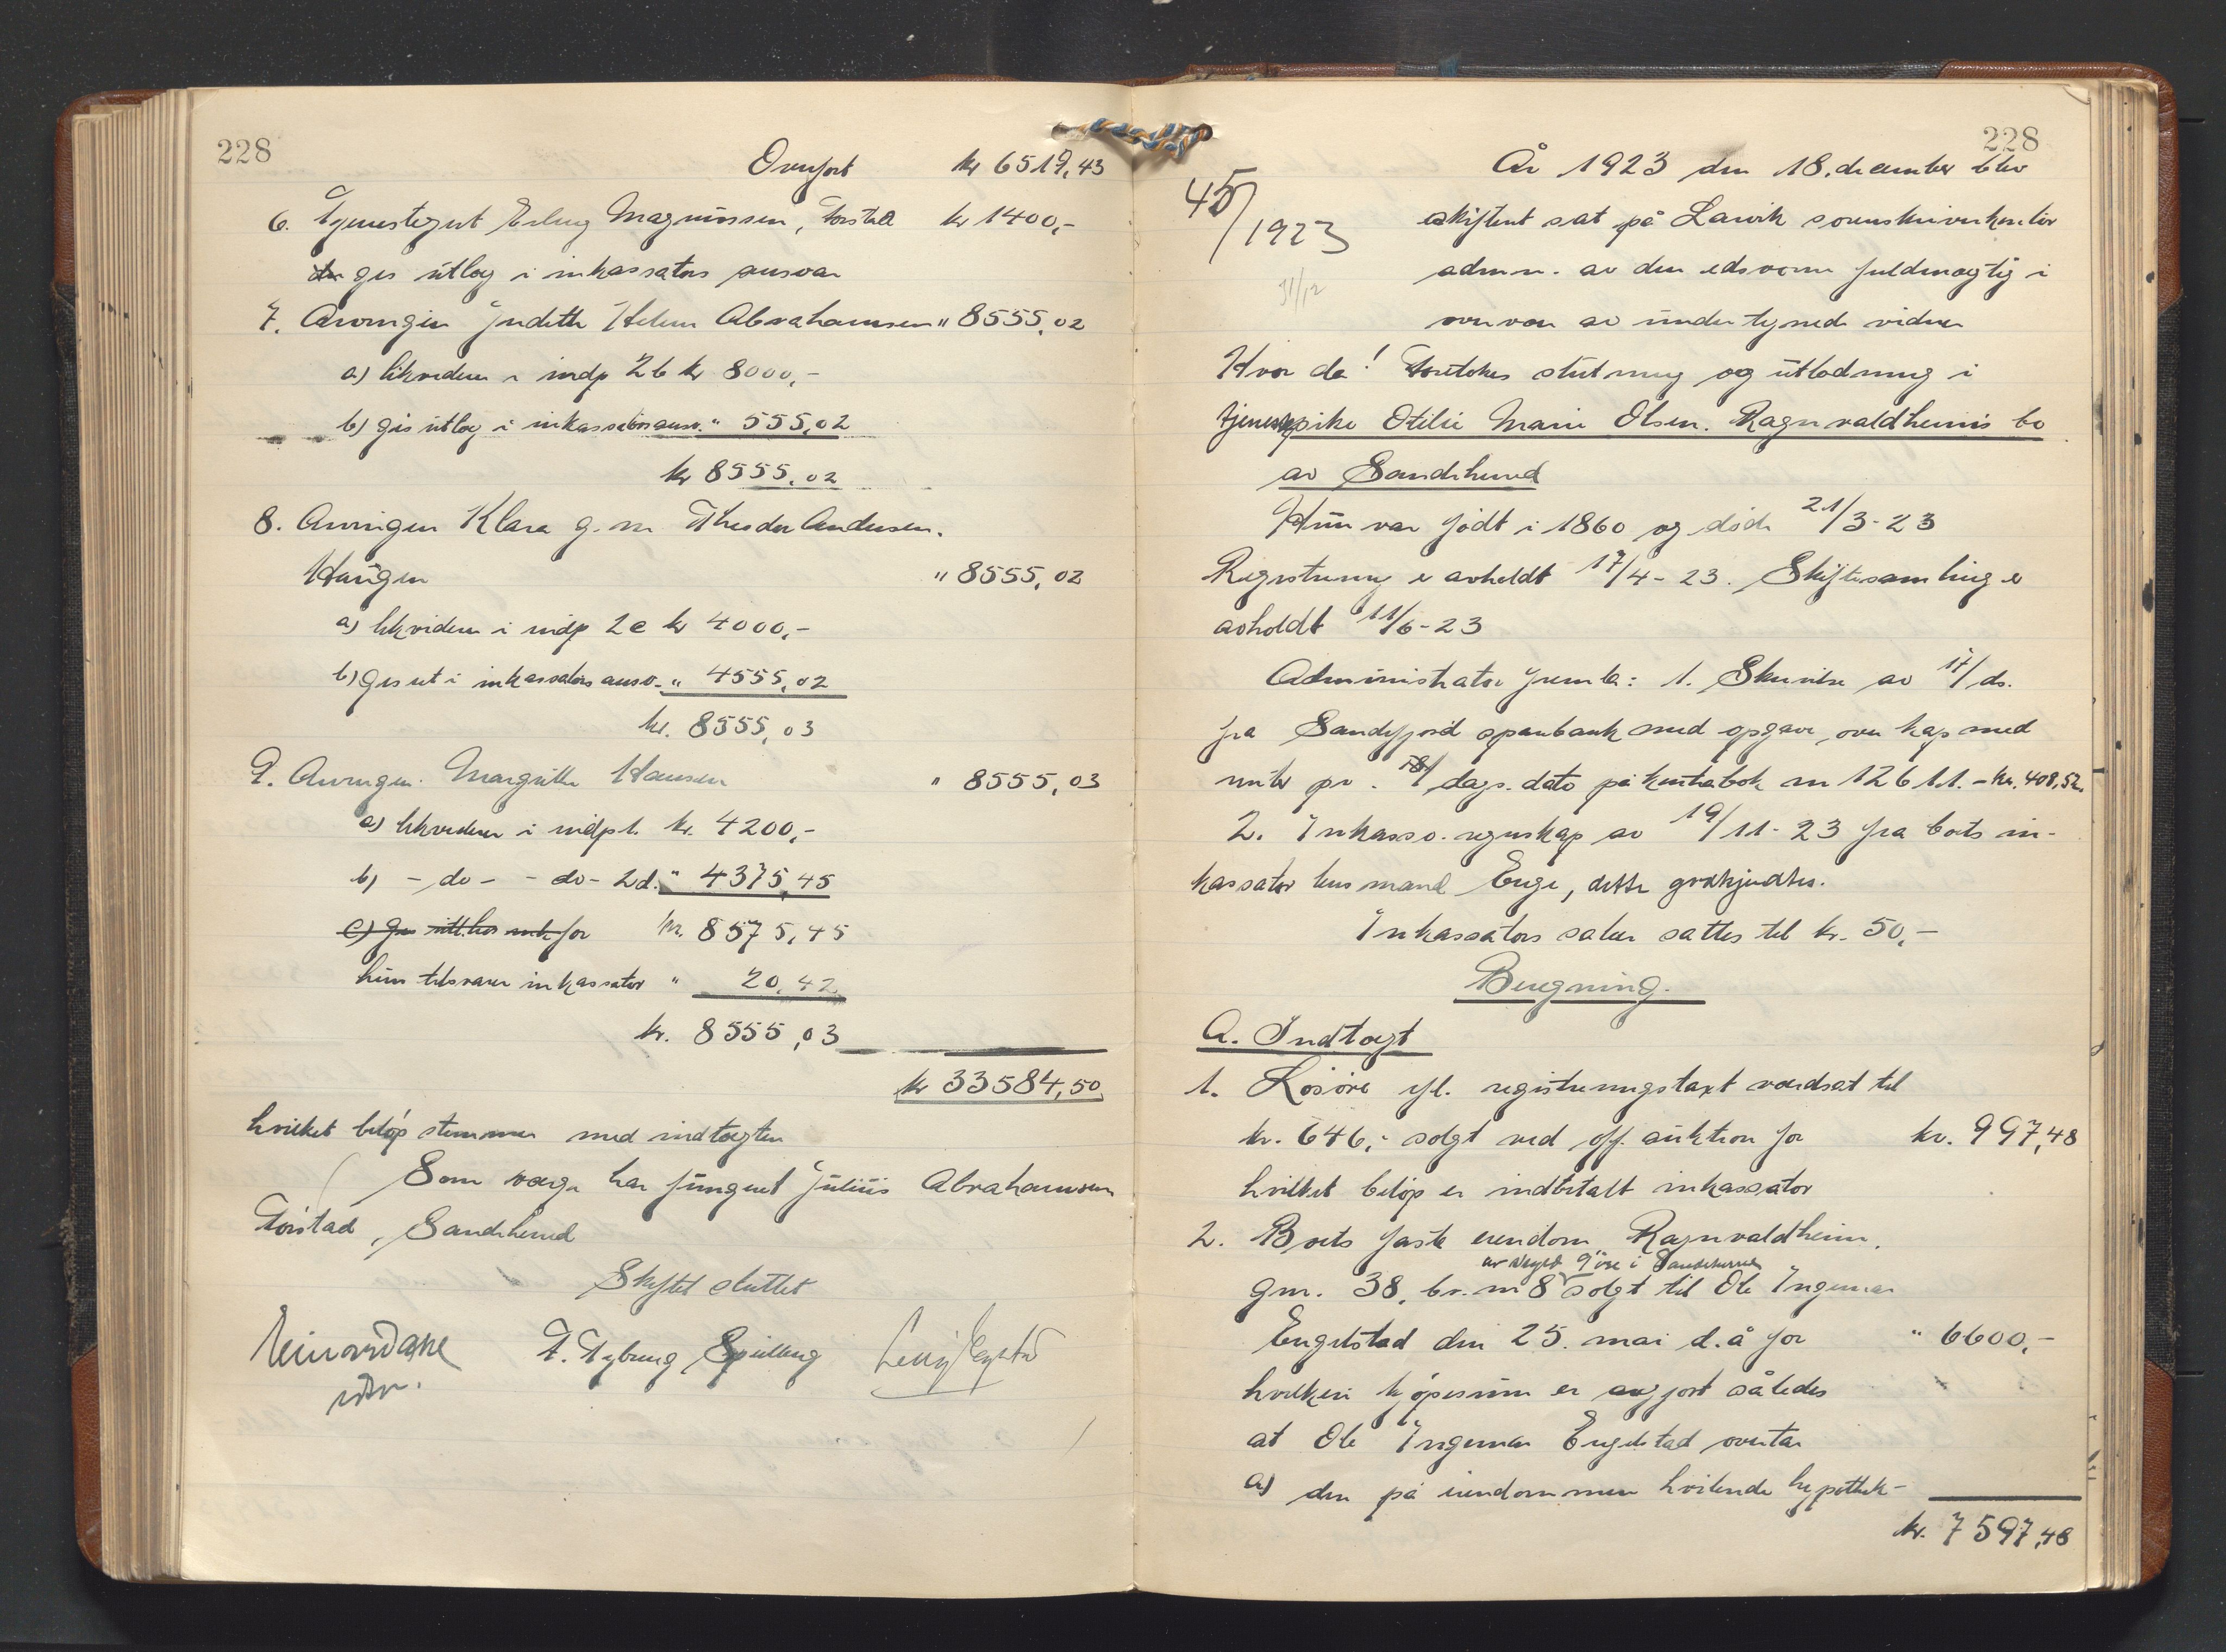 228
Overført kr 6519,43
6. Tjenestegut Erling Magnussen, Torstad kr 1400,-
gis utlæg i inkassators ansvar
7. Arvingen Judith Helene Abrahamsen " 8555,02
a) likvideres i indp 2b kr 8000,-
b) gis utlæg i inkassators ansv. " 555,02
kr 8555,02
8. Arvingen Klara g. m. Theodor Andersen.
Haugen " 8555,02
a) likvideres i indp 2c kr 4000,-
b) gis ut i inkassators ansv. " 4555,02
kr. 8555,03
9. Arvingen Margrethe Hansen " 8555,03
a) likvideres i indp 1. kr. 4200,-
b) - do - - do - 2d. " 4375,45
for kr. 8575,45
hun tilsvarer inkassator " 20,42
kr. 8555,03
kr 33584,50
hvilket beløp stemmer med indtægten
Som verge har fungert Julius Abrahamsen
Torstad, Sandeherred
Skiftet sluttet
F. Nyberg Spilling
228
45/1923
31/12
År 1923 den 18. december blev
skifteret sat på Larvik sorenskriverkontor
adm. av den edsvorne fuldmægtig i
overvær av undertegnede vidner
Hvor da! Foretokes slutning og utlodning i
tjenestepike Otilie Marie Olsen. Ragnvaldheims bo
av Sandeherred
Hun var født i 1860 og døde 21/3-23
Registrering er avholdt 17/4-23. Skiftesamling er
avholdt 11/6-23
Administrator fremla: 1. Skrivelse av 17/ds.
fra Sandefjord sparebank med opgave over kap med
renter pr. dags. dato på kontrabok nr 12611. - kr. 408,52.
2. Inkasso. regnskap av 19/11-23 fra boets in-
kassator lensmand Enge, dette godkjendtes.
Inkassators salær sattes til kr. 50,-
Beregning.
A. Indtægt
1. Løsøre ifl. registreringstakt værdsat til
kr. 646,- solgt ved off. auktion for kr. 997,48
hvilket beløp er indbetalt inkassator
2. Boets faste eiendom Ragnvaldheim,
av skyld 9 øre i Sandeherred
gnr. 38, br. nr 8 solgt til Ole Ingemar
Engelstad den 25. mai d.å for " 6600,-
hvilken kjøpesum er avgjort således
at Ole Ingemar Engelstad overtar
a) den på eiendommen hvilende hypothek-
kr. 7597,48